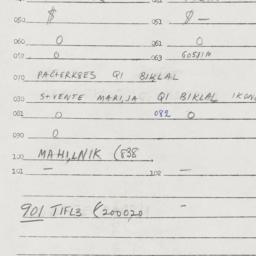 050 $ 051 $ —
060 0 061 0
070 0 063
070 PACHERKBES QI BIKLAL
030 STVENTE MARIJA QI BIKLAL IKON
081 0 082 0
090 0
100 MAHILNIK (838
101 — 102 —
901 TIFL3 (200020 -